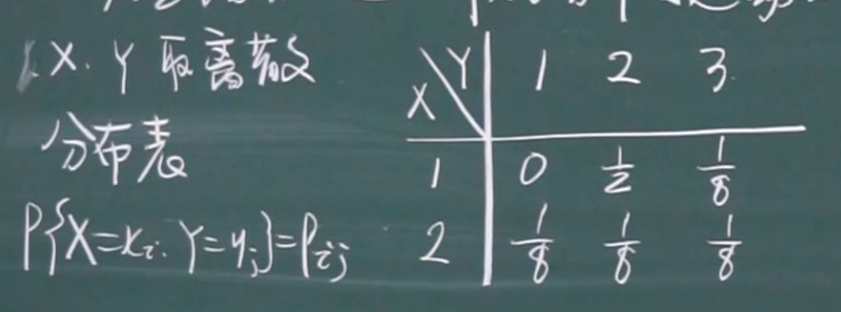 X. Y 取离散
分布表
P{X=xᵢ. Y=yⱼ}=Pᵢⱼ
X\Y 1 2 3
1 0 1/2 1/8
2 1/8 1/8 1/8